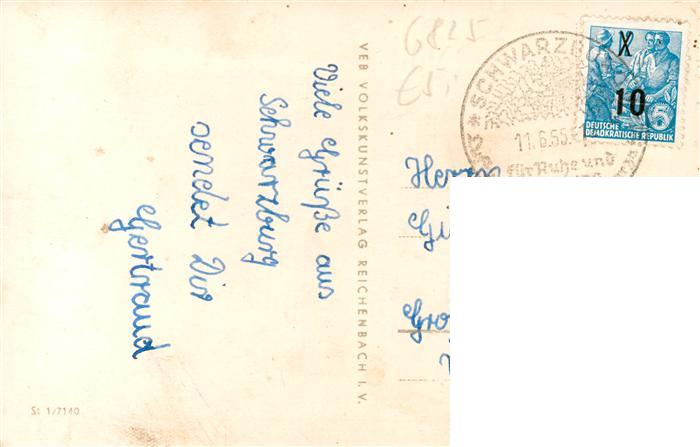 Viele Grüße aus
Schwarzburg
sendet Dir
Gertraud
VEB VOLKSKUNSTVERLAG REICHENBACH I. V.
St 1/7140
6825
£5
SCHWARZB
11.6.55.
für Ruhe und
10
DEUTSCHE
DEMOKRATISCHE REPUBLIK
Herrn